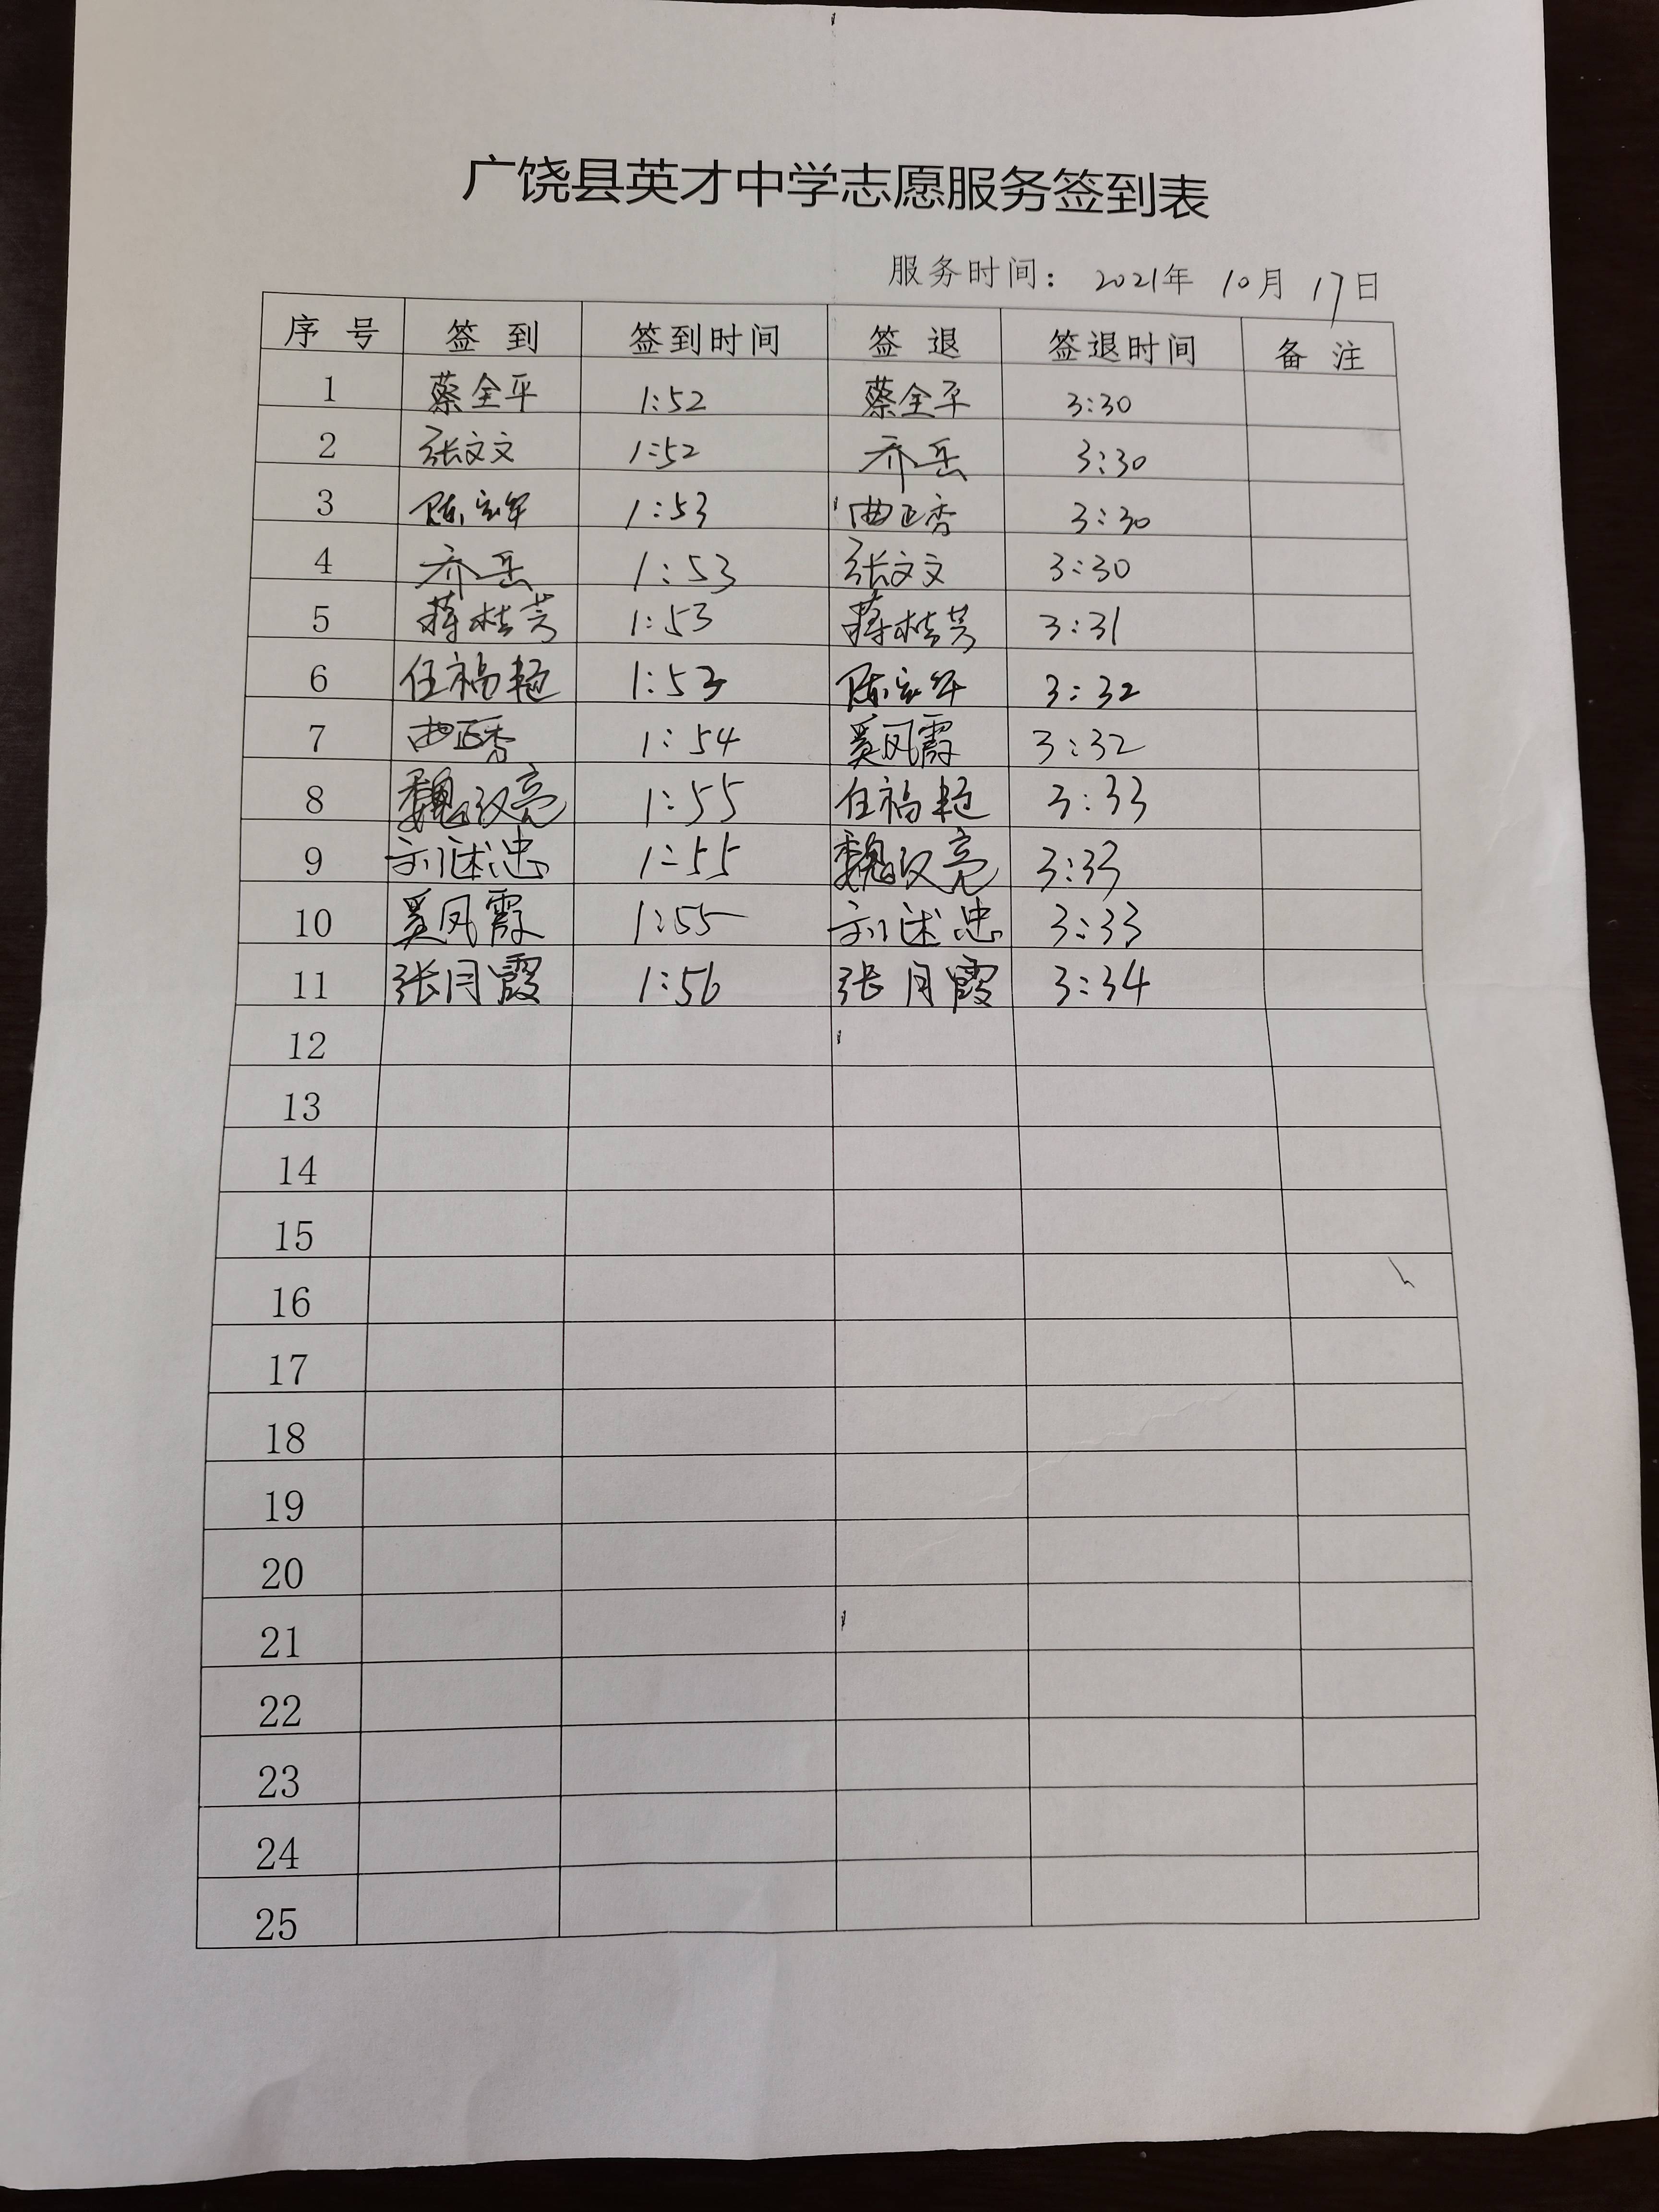 广饶县英才中学志愿服务签到表
服务时间： 2021年 10月 17日
序号 签到 签到时间 签退 签退时间 备注
1 蔡全平 1:52 蔡全平 3:30
2 张文文 1:52 乔岳 3:30
3 陈家军 1:53 曲正秀 3:30
4 乔岳 1:53 张文文 3:30
5 蒋桂芳 1:53 蒋桂芳 3:31
6 任福艳 1:53 陈家军 3:32
7 曲正秀 1:54 凤霞 3:32
8 魏汉亮 1:55 任福艳 3:33
9 刘述忠 1:55 魏汉亮 3:33
10 凤霞 1:55 刘述忠 3:33
11 张月霞 1:56 张月霞 3:34
12
13
14
15
16
17
18
19
20
21
22
23
24
25